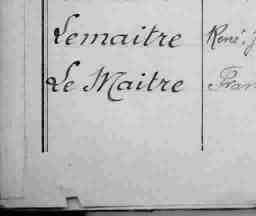 Lemaitre René, J
Le Maitre Fran